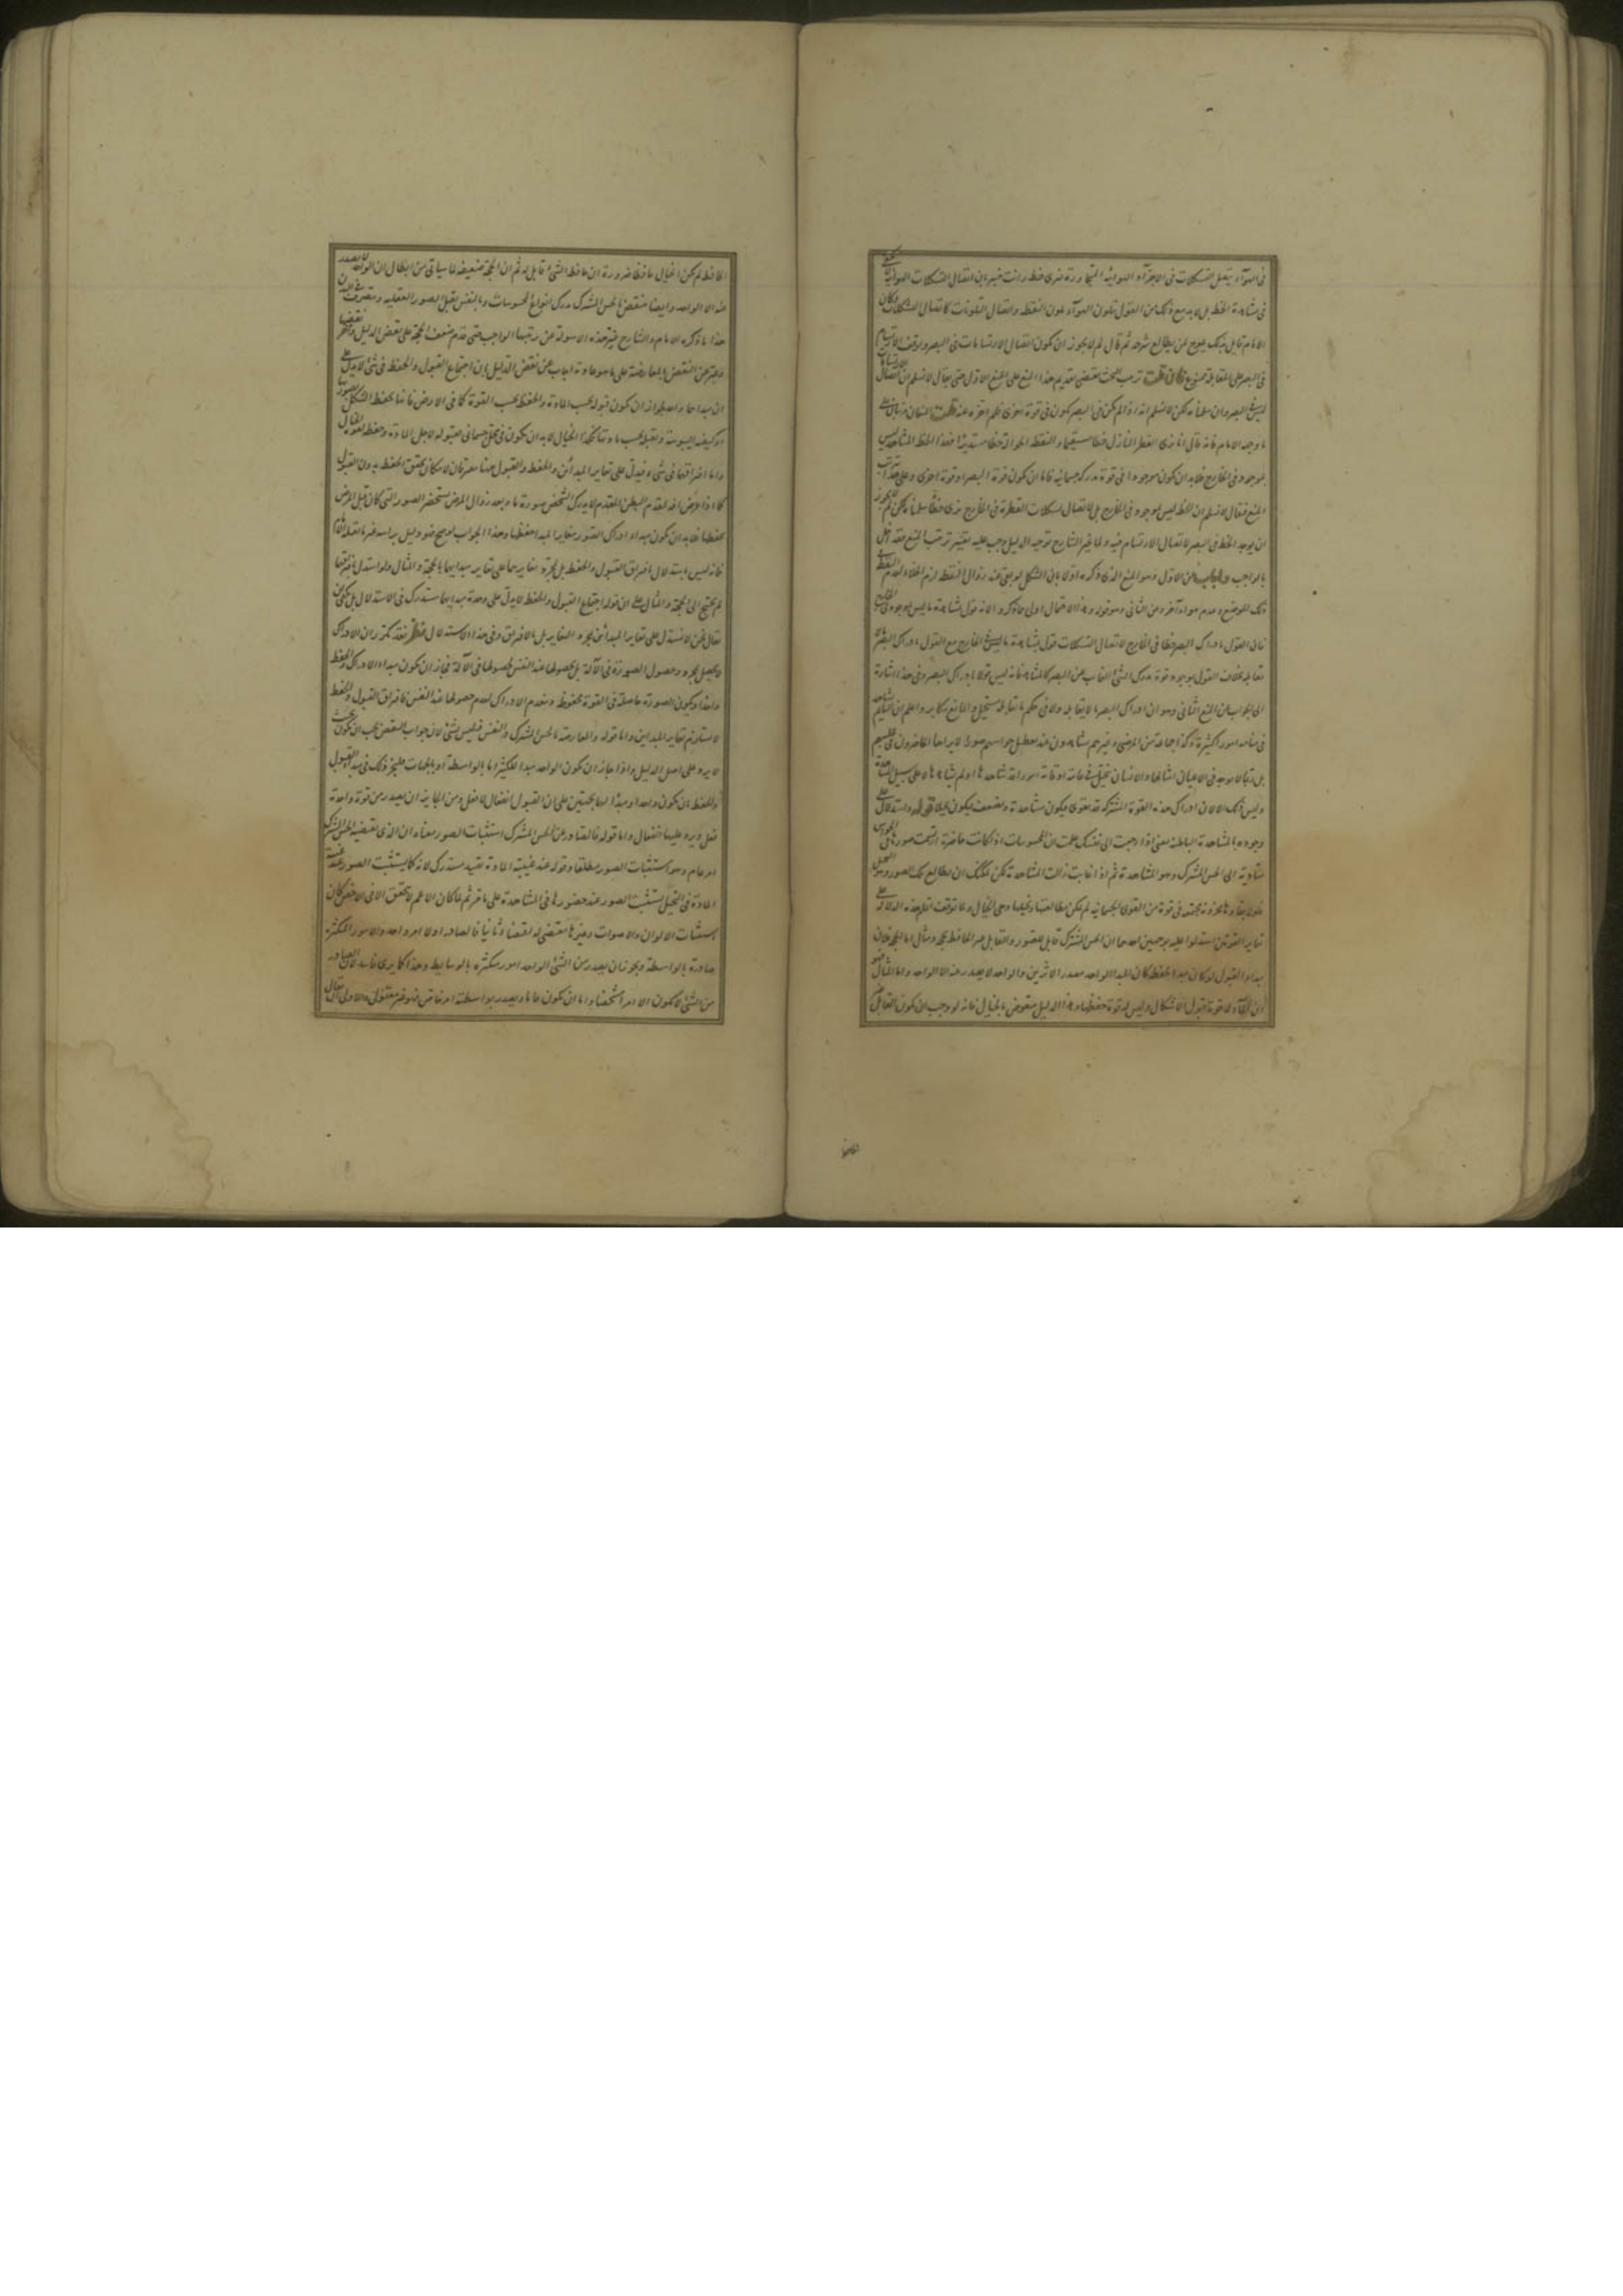 في الهواء يتصل التشكلات في الاجزاء الهوائية المتجاورة فنرى خطا وانت خبير بان اتصال التشكلات الهوائية
في مشاهدة الخط بل لا بد مع ذلك من القول بتلون الهواء بلون النقطة واتصال التلونات كاتصال التشكلات وكان
الامام قايل بذلك يلوح لمن يطالع شرحه ثم قال لم لا يجوز ان يكون اتصال الارتسامات في البصر
في البصر على المقابلة ممنوع فان قلت ترتيب البحث يقتضي تقديم هذا المنع على المنع الاول حتى يقال لا نسلم ان اتصال
ليس في البصر وان سلمناه لكن لا نسلم انه اذا لم يكن في البصر يكون في قوة اخرى
ما وجهه الامام فانه قال انا نرى القطر النازل خطا مستقيما والنقطة الجوالة خطا مستديرا فهذا الخط المشاهد ليس
بموجود في الخارج فلا بد ان يكون موجودا في قوة مدركة جسمانية فاما ان يكون قوة البصر او قوة اخرى وعلى هذا
المنع فيقال لا نسلم ان الخط ليس بموجود في الخارج بل لاتصال تشكلات القطرة في الخارج نرى خطا سلمناه لكن لم لا يجوز
ان يوجد الخط في البصر لاتصال الارتسام فيه ولما غير الشارح توجيه الدليل وجب عليه تغيير ترتيب المنع فقد اخل
بالواجب والجواب عن الاول وهو المنع الذي ذكره اولا بان الشكل لو بقي عند زوال النقطة لزم الخلاء
ذلك الموضع وعدم هواء آخر وعن الثاني وهو قوله وهذا الاحتمال اولى مما ذكروا لانه قول بمشاهدة ما ليس بموجود في الخارج
فان القول بادراك البصر خطا في الخارج لاتصال التشكلات قول بمشاهدة ما ليس في الخارج مع القول بادراك البصر ما لا
يقابله بخلاف القول بوجود قوة تدرك الشيء الغايب عن البصر كالمشاهد فانه ليس قولا بادراك البصر وفي هذا اشارة
الى الجواب عن المنع الثاني وهو ان ادراك البصر ما لا يقابله ولا في حكم ما يقابله مستحيل والمانع مكابر واعلم ان النايم يشاهد
في منامه امورا كثيرة وكذا جماعة من المرضى وغيرهم يشاهدون عند تعطل حواسهم صورا لا يراها الحاضرون
بل ربما لا يوجد في الاعيان امثالها والانسان يتخيل في عامة اوقاته امورا قد شاهدها او لم يشاهدها لا على سبيل المشاهدة
وليس ذلك الا لان ادراك هذه القوة المشتركة قد يقوى فيكون مشاهدة وقد يضعف فيكون تخيلا واستدلال على
وجوده بالمشاهدة الباطنة يعني اذا رجعت الى نفسك علمت ان المحسوسات اذا كانت حاضرة ارتسمت صورها في الحواس
متأدية الى الحس المشترك وهو المشاهدة ثم اذا غابت زالت المشاهدة لكن يمكنك ان تطالع تلك الصور وهو التخيل
فلولا بقاؤها مخزونة مجتمعة في قوة من القوى الجسمانية لم يمكن مطالعتها وتخيلها وهي الخيال ولما توقف اتمام هذه الدلالة على
تغاير القوتين استدلوا عليه بوجهين احدهما ان الحس المشترك قابل للصور والقابل غير الحافظ بحجة ومثال اما الحجة فلان
مبدأ القبول لو كان مبدأ الحفظ كان المبدأ الواحد مصدر الاثرين والواحد لا يصدر عنه الا الواحد واما المثال فهو
ان الماء له قوة قبول الاشكال وليس له قوة حفظها وهذا الدليل منقوض بالخيال فانه لو وجب ان يكون القابل غير
الحافظ
الحافظ لم يكن الخيال حافظا ضرورة ان حافظ الشيء قابل له ثم ان الحجة ضعيفة لما سيأتي من ابطال ان الواحد لا يصدر
عنه الا الواحد وايضا منتقض بالحس المشترك مدرك لانواع المحسوسات وبالنفس تقبل الصور العقلية وتتصرف في البدن
هذا ما ذكره الامام والشارح غير هذه الاسولة عن رتبتها الواجب حتى قدم ضعف الحجة على نقض الدليل
وعبر عن النقض بالمعارضة على ما هو عادته اجاب عن نقض الدليل بان اجتماع القبول والحفظ في شيء لا يدل على
ان مبداهما واحد لجواز ان يكون قبوله بحسب المادة والحفظ بحسب القوة كما في الارض فانها تحفظ الشكل بصورتها
او كيفية اليبوسة وتقبله بحسب مادتها فكذا الخيال لا بد ان يكون في محل جسماني فقبوله لاجل المادة وحفظه لقوة الخيال
واما افتراقهما في شيء فيدل على تغاير المبدأين والحفظ والقبول ههنا مفترقان لامكان تحقق الحفظ بدون القبول
كما اذا عرض آفة لمقدم البطن المقدم لا يدرك الشخص صورة ما وبعد زوال المرض يستحضر الصور التي كان قبل المرض
يحفظها فلا بد ان يكون مبدأ ادراك الصور مغايرا لمبدأ حفظها وهذا الجواب لو صح فهو دليل براسه غير ما نقله الامام
فانه ليس استدلالا بافتراق القبول والحفظ بل بمجرد تغايرهما على تغاير مبداهما بالحجة والمثال ولو استدل بافتراقهما
لم يحتج الى الحجة والمثال على ان قوله اجتماع القبول والحفظ لا يدل على وحدة مبداهما مستدرك في الاستدلال بل يكفي ان
يقال نحن لا نستدل على تغاير المبدأين بمجرد التغاير بل بالافتراق وفي هذا الاستدلال نظر فقد تكرر ان الادراك
لا يحصل بمجرد حصول الصورة في الآلة بل بحصولها عند النفس لحصولها في الآلة فجاز ان يكون مبدأ الادراك والحفظ
واحدا ويكون الصورة حاصلة في القوة محفوظة وينعدم الادراك لعدم حصولها عند النفس فافتراق القبول والحفظ
لا يستلزم تغاير المبدأين واما قوله والمعارضة بالحس المشترك والنفس فليس بشيء لان جواب النقض يجب ان يكون بحيث
لا يرد على اصل الدليل واذا جاز ان يكون الواحد مبدأ للكثير اما بالواسطة او بالجهات فليجز ذلك في مبدأ القبول
والحفظ بان يكون واحدا ومبدأ لهما بجهتين على ان القبول انفعال لا فعل ومن الجايز ان يصدر من قوة واحدة
فعل ويرد عليها انفعال واما قوله فالصادر عن الحس المشترك استثبات الصور معناه ان الذي يقتضيه الحس المشترك
امر عام وهو استثبات الصور مطلقا وقوله عند غيبة المادة تقييد مستدرك لانه كما يستثبت الصور عند غيبة
المادة في التخيل يستثبت الصور عند حضورها في المشاهدة على ما مر ثم لما كان الاعم لا يتحقق الا في الاخص كان
استثبات الالوان والاصوات وغيرها مقتضى له اقتضاء ثانيا فالصادر اولا امر واحد والامور المتكثرة
صادرة بالواسطة ويجوز ان يصدر من الشيء الواحد امور متكثرة بالوسايط وهذا كما يرى فاسد لان الصادر
من الشيء لا يكون الا امرا شخصيا واما ان يكون عاما ويصدر بواسطته امر خاص فهو غير معقول والاولى ان يقال